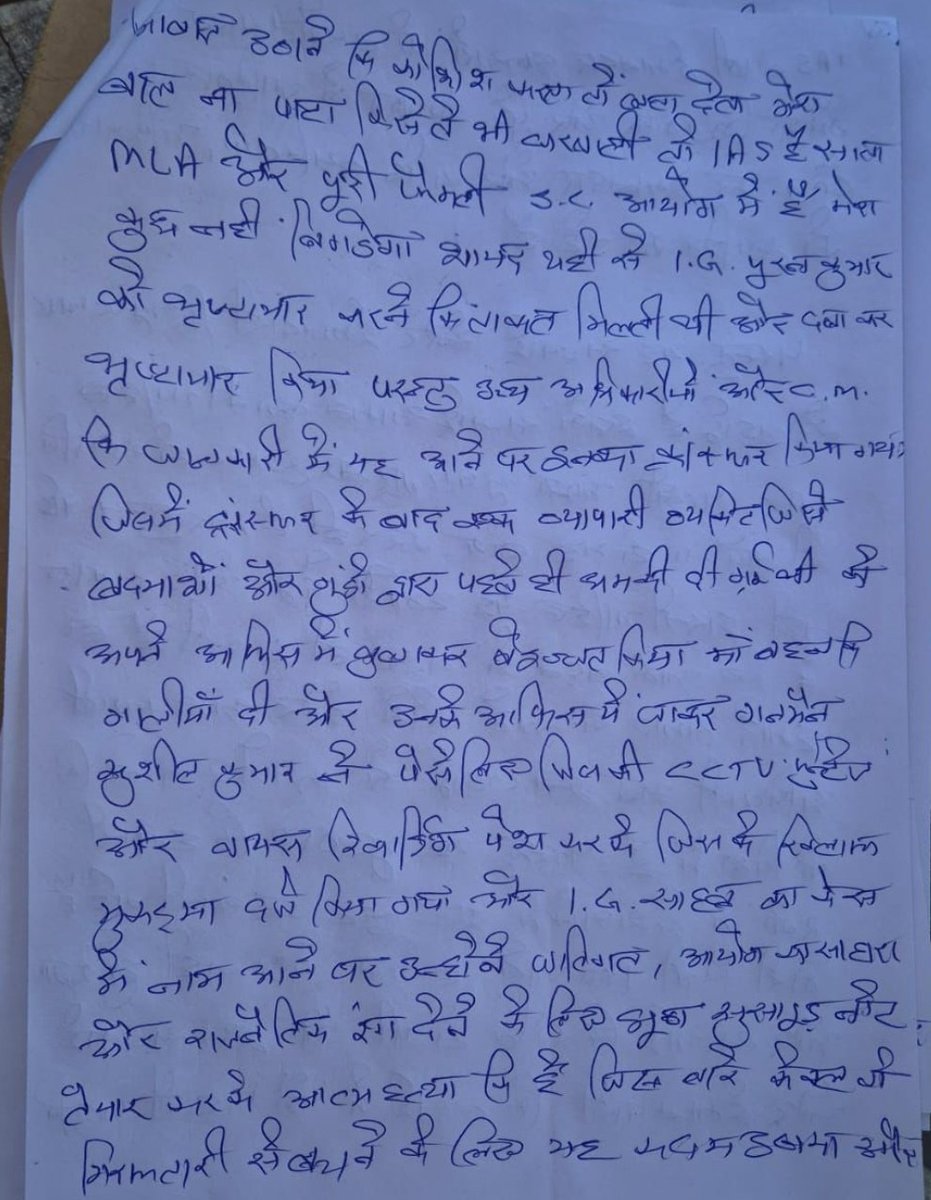 आवाज उठाने कि कोशिश करता तो दबा देता मेरा
बाल ना पाटा किसी ते भी घरवाली तो IAS है साला
MLA और पूरी फैमली S.C. आयोग में है मेरा
कुछ नही बिगडेगा शायद यही से I.G. पुरन कुमार
को भ्रष्टाचार करने कि ताकत मिलती थी और दबा कर
भ्रष्टाचार किया परन्तु उच्च अधिकारीयों और C.M.
कि जानकारी में यह आने पर इनका ट्रांस्फर किया गया
जिसमें ट्रांस्फर के बाद एक व्यापारी व्यक्ति जिसे
बदमाशों और गुंडो द्वारा पहले ही धमकी दी गई थी को
अपने आफिस में बुलाकर बेइज्जत किया माँ बहन कि
गालीयाँ दी और उनके आफिस में जाकर गनमैन
सुशील कुमार ने पैसे लिए जिसकी CCTV फुटेज
और वायस रिकार्डिंग पेश करके जिस के खिलाफ
मुकद्दमा दर्ज किया गया और I.G. साहब का केस
में नाम आने पर उन्होने जातिगत, आयोग का सहारा
और राजनैतिक रंग देने के लिए झूठा सुसाइड नोट
तैयार करके आत्महत्या कि है जिस बारे केवल
गिरफ्तारी से बचने के लिए यह कदम उठाया और